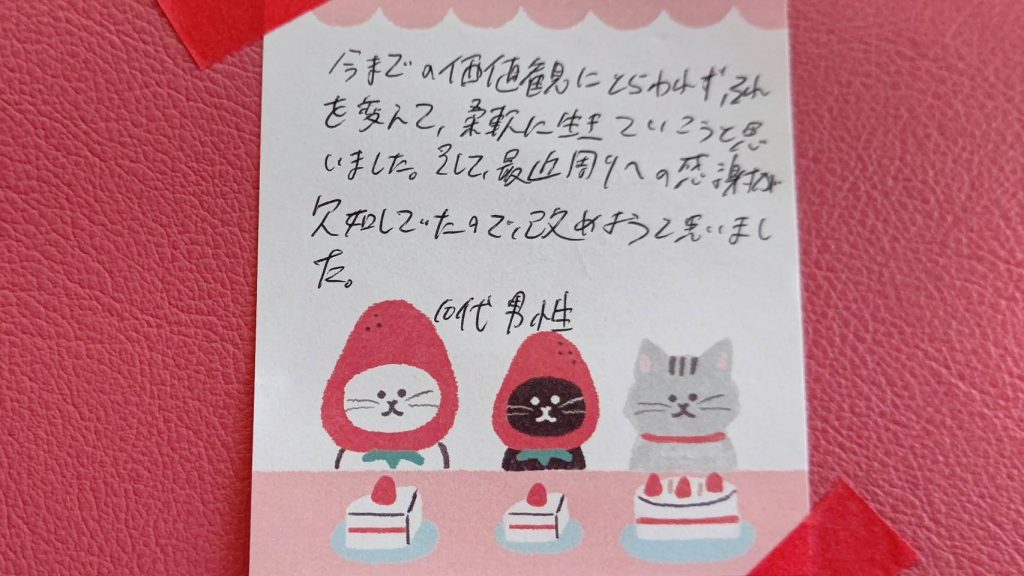 今までの価値観にとらわれず、それ
を変えて、柔軟に生きていこうと思
いました。そして、最近周りへの感謝が
欠如していたので、改めようと思いまし
た。
10代 男性